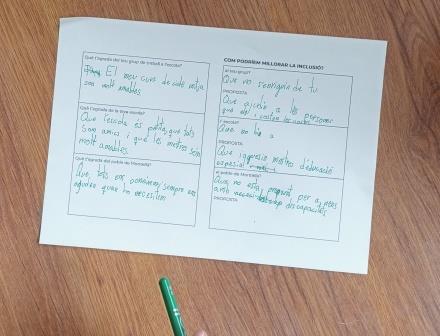 Què t'agrada del teu grup de treball a l'escola?
El meu curs de cole mitja
son molt amables
Què t'agrada de la teva escola?
Que l'escola és petita, que tots
som amics i que les mestres són
molt amables.
Què t'agrada del poble de
Que, tots ens coneixem, sempre ens
ajuden quan ho necesitem
COM PODRÍEM MILLORAR LA INCLUSIÓ?
Al teu grup?
Que no s'enriguin de tu
PROPOSTA:
Que ajudin a les persones
que els i costen les coses
A l'escola?
Que no hi a
PROPOSTA:
Que mestres d'educació
espesial
Al poble de
Que, no esta, preparat per a gent
amb discapacitats
PROPOSTA: